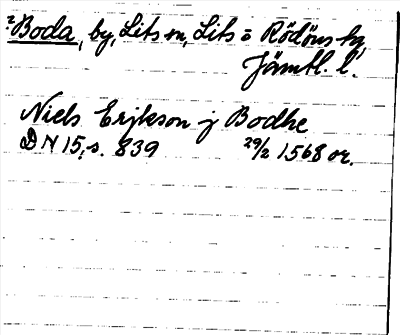 ²Boda, by, Lits sn, Lits o Rödöns hg,
Jämtl. l.
Niels Erjkson j Bodhe
DN 15, s. 839 29/2 1568 or.